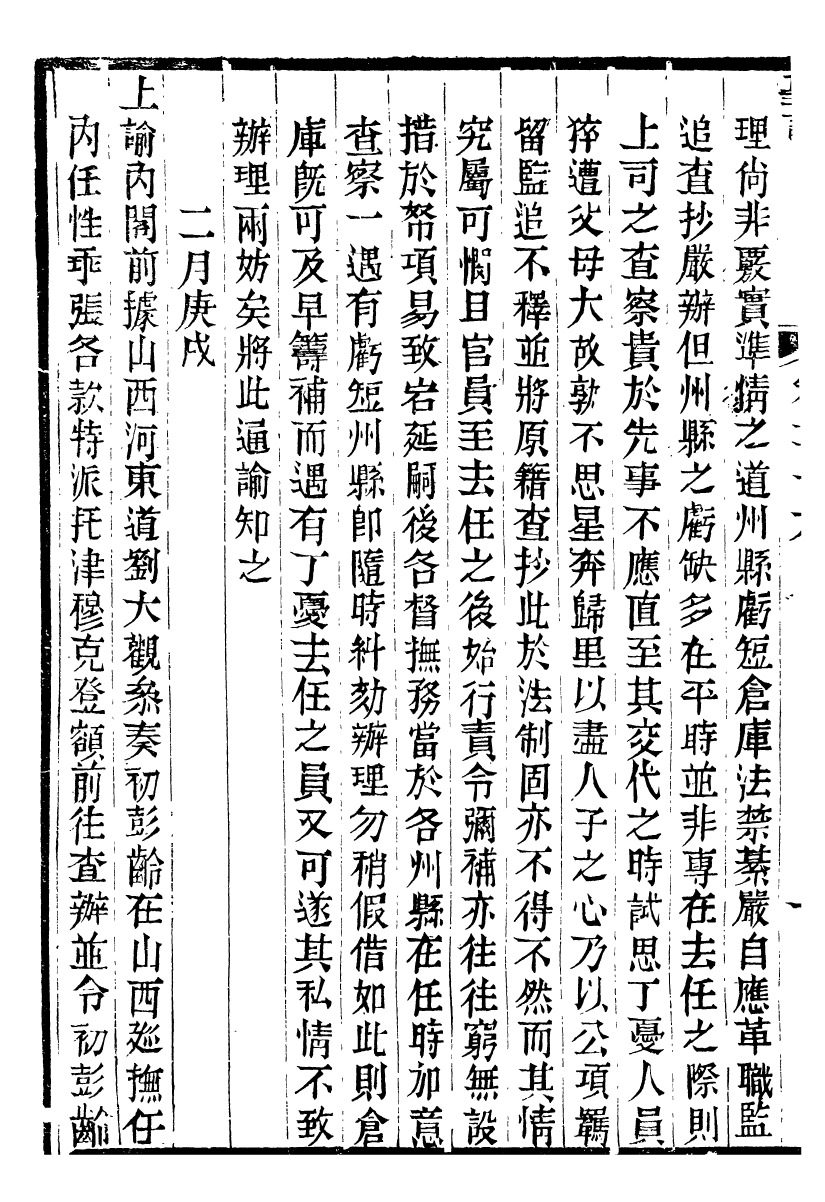 理尚非覈實準情之道州縣虧短倉庫法禁綦嚴自應革職監
追查抄嚴辦但州縣之虧缺多在平時並非專在去任之際則
上司之查察貴於先事不應直至其交代之時試思丁憂人員
猝遭父母大故孰不思星奔歸里以盡人子之心乃以公項羈
留監追不釋並將原籍查抄此於法制固亦不得不然而其情
究屬可憫且官員至去任之後始行責令彌補亦往往窮無設
措於帑項易致宕延嗣後各督撫務當於各州縣在任時加意
查察一遇有虧短州縣卽隨時糾劾辦理勿稍假借如此則倉
庫旣可及早籌補而遇有丁憂去任之員又可遂其私情不致
辦理兩妨矣將此通諭知之
二月庚戌
上諭內閣前據山西河東道劉大觀叅奏初彭齡在山西廵撫任
內任性乖張各款特派托津穆克登額前往查辦並令初彭齡